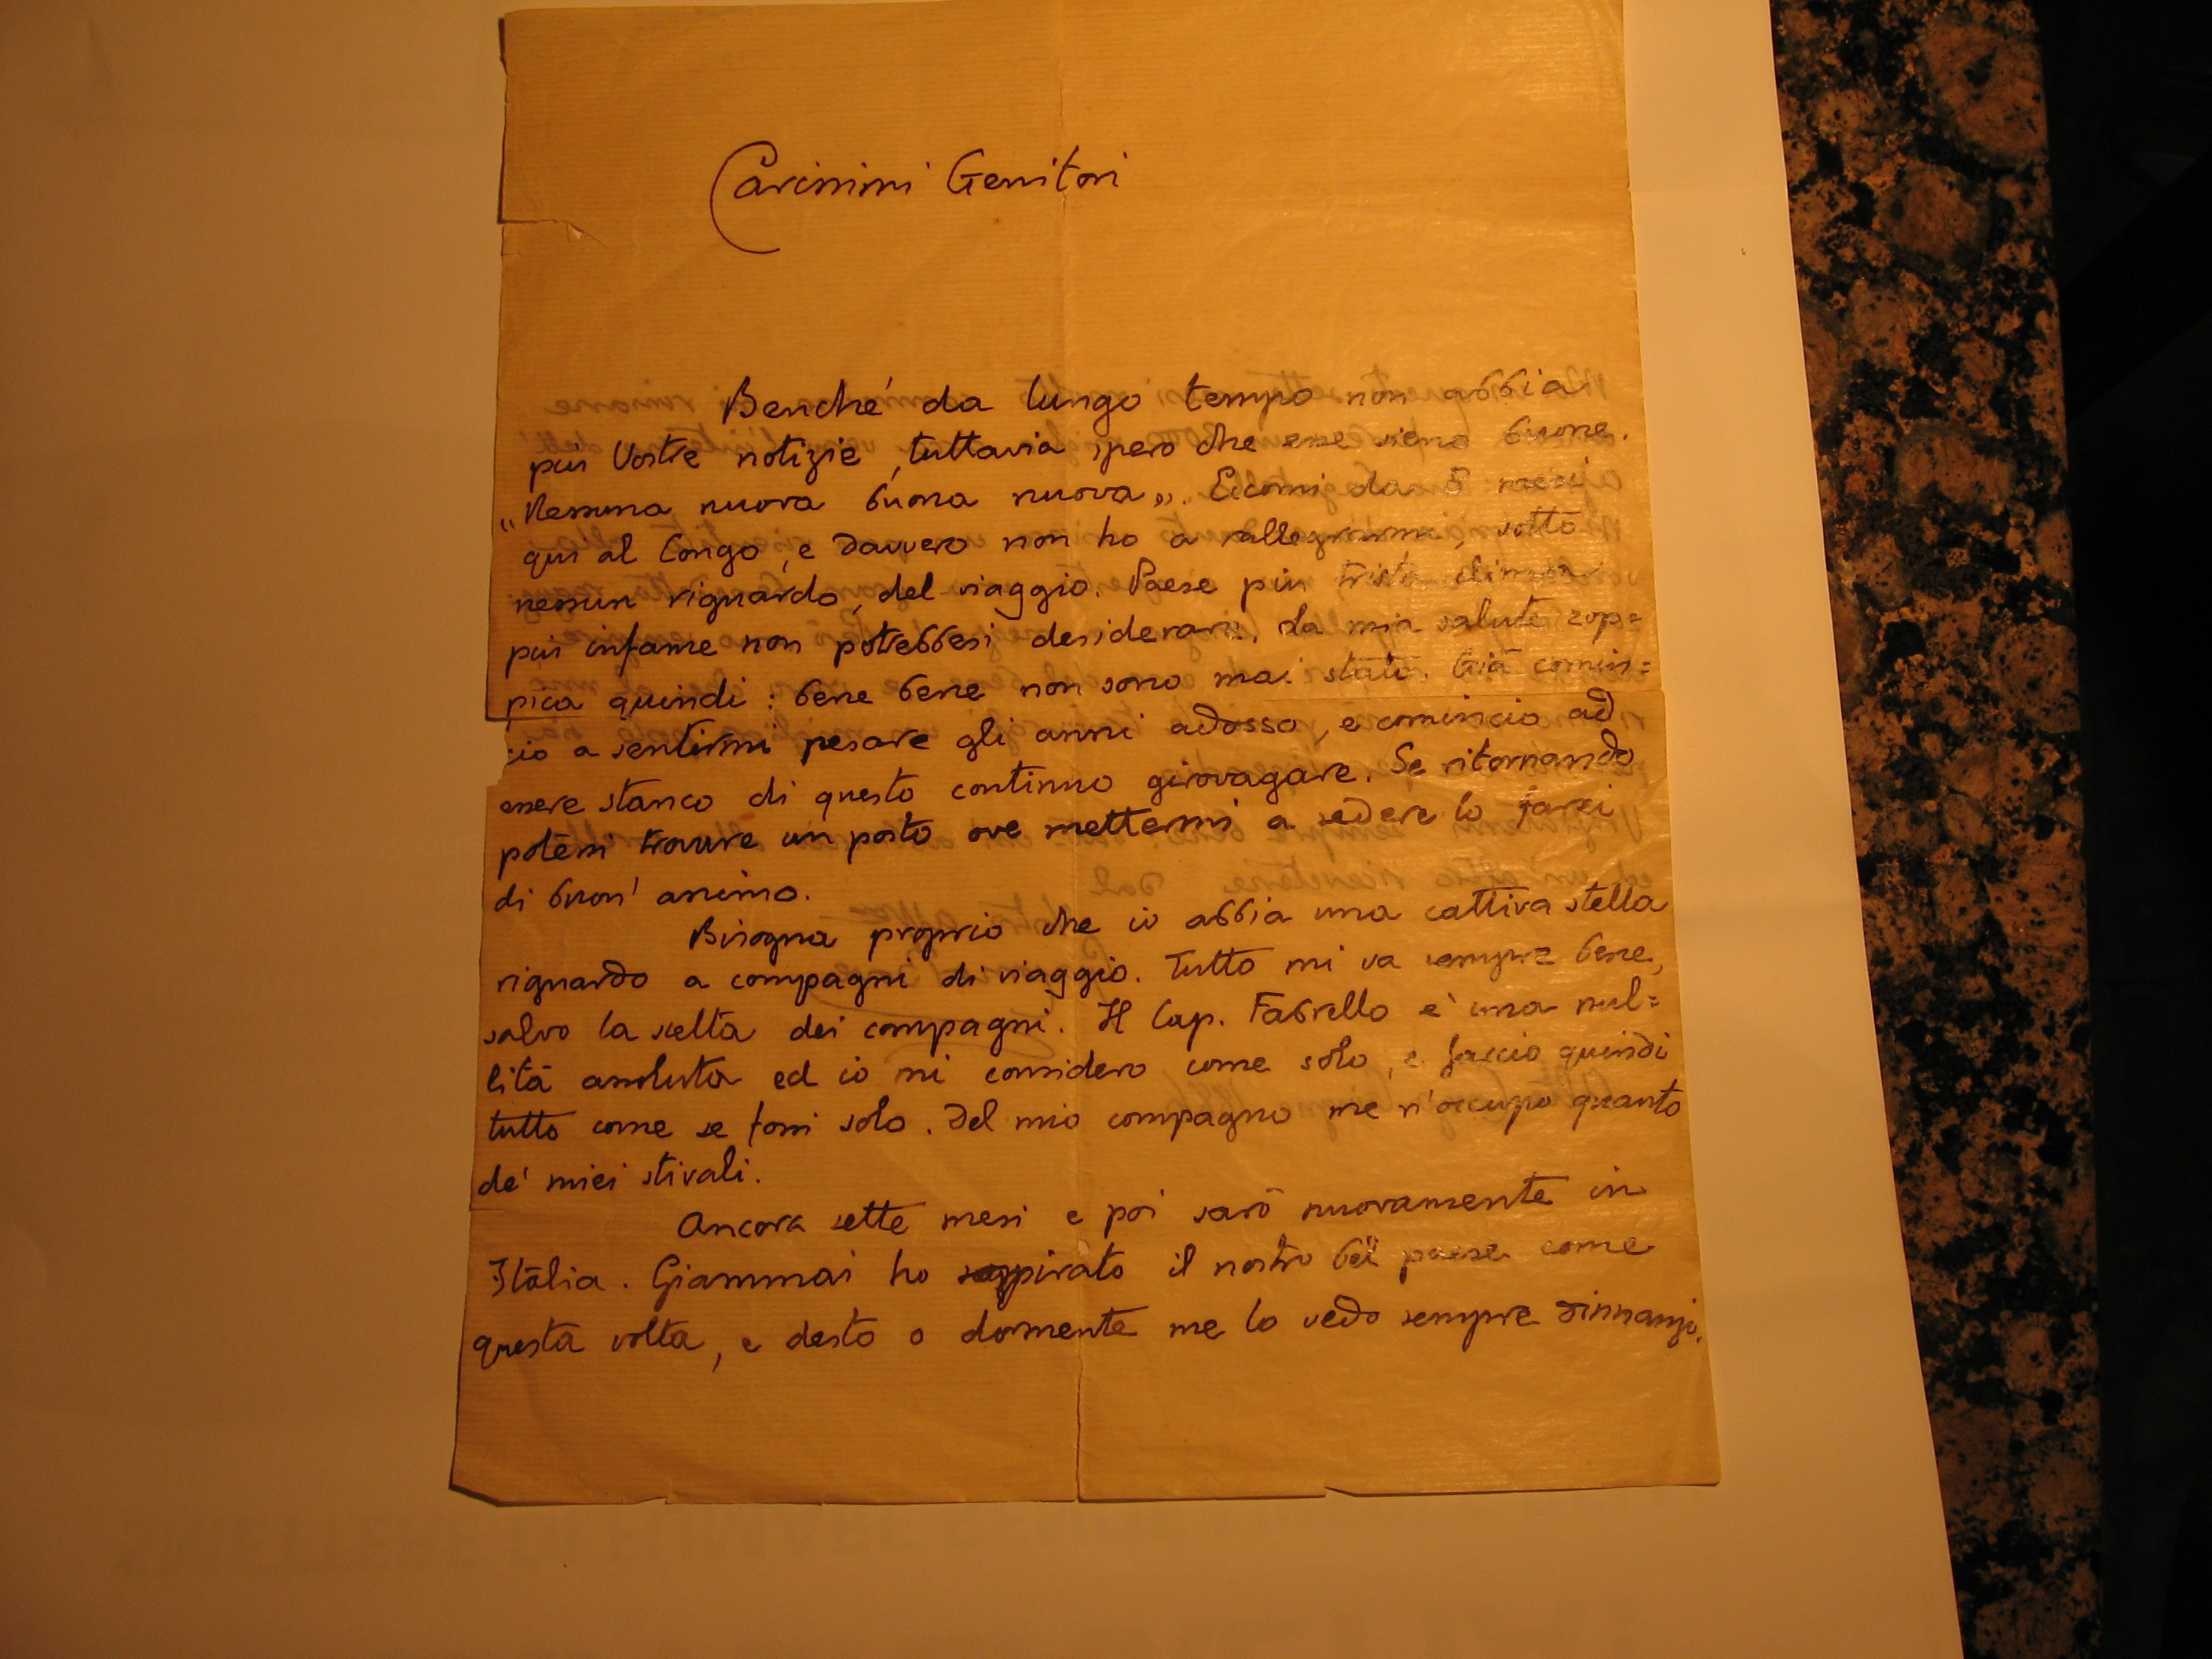 Carissimi Genitori
Benché da lungo tempo non abbia
più Vostre notizie, tuttavia spero che esse sieno buone.
„Nessuna nuova buona nuova„. Eccomi da 5 mesi
qui al Congo, e davvero non ho a rallegrarmi, sotto
nessun riguardo, del viaggio. Paese più triste clima
più infame non potrebbesi desiderare. La mia salute zop=
pica quindi: bene bene non sono mai stato. Già comin=
cio a sentirmi pesare gli anni adosso, e comincio ad
essere stanco di questo continuo girovagare. Se ritornando
potessi trovare un posto ove mettermi a sedere lo farei
di buon' animo.
Bisogna proprio che io abbia una cattiva stella
riguardo a compagni di viaggio. Tutto mi va sempre bene,
salvo la scelta dei compagni. Il Cap. Fabrello è una nul=
lità assoluta ed io mi considero come solo, e faccio quindi
tutto come se fossi solo. Del mio compagno me n'occupo quanto
de' miei stivali.
Ancora sette mesi e poi sarò nuovamente in
Itàlia. Giammai ho sospirato il nostro bel paese come
questa volta, e desto o dormente me lo vedo sempre dinnanzi.